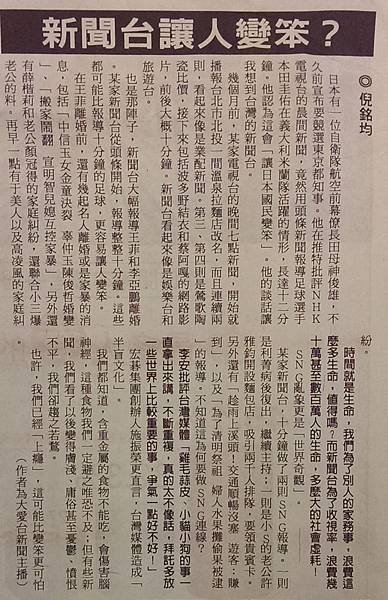 新聞台讓人變笨？
◎倪銘均
日本有一位自衛隊航空前幕僚長田母神俊雄，不
久前宣布要競選東京都知事。他在推特批評NHK
電視台的晨間新聞，竟然用頭條新聞報導足球選手
本田圭佑在義大利米蘭隊活躍的情形，長達十二分
鐘。他認為這會「讓日本國民變笨」。他的談話讓
我想到台灣的新聞台。
幾個月前，某家電視台的晚間七點新聞，開始就
播報台北市北投一間溫泉拉麵店改名，而且連續兩
則，看起來像是業配新聞。第三、第四則是鶯歌陶
瓷比價，接下來包括波多野結衣和蔡阿嘎的網路影
片，前後大概十分鐘。新聞台看起來像是娛樂台和
旅遊台。
也是那陣子，新聞台大幅報導王菲和李亞鵬離婚
。某家新聞台從頭條開始，報導整整十分鐘。這些
都可能比報導十分鐘的足球，更容易讓人變笨。
在王菲離婚前，還有幾起名人離婚或是家暴的消
息，包括「中信玉女金童決裂　辜仲玉陳俊哲婚變
」、「搬家鬧翻　宣明智兒媳互控家暴」，另外還
有薛楷莉和老公顏冠得的家庭糾紛，還聯合小三爆
老公的料。再早一點有于美人以及高凌風的家庭糾
紛。
時間就是生命，我們為了別人的家務事，浪費這
麼多生命，值得嗎？而新聞台為了收視率，浪費幾
十萬甚至數百萬人的生命，多麼大的社會虛耗！
SNG亂象更是「世界奇觀」。
某家新聞台，十分鐘做了兩則SNG報導。一則
是利菁病後復出，繼續主持；一則是小S的老公許
雅鈞開設麵包店，吸引兩千人排隊，要領貴賓卡。
另外還有「趁雨上溪頭，交通順暢沒塞　遊客：賺
到」，以及「為了清明祭祖　婦人水果攤偷果被逮
」的報導。不知道這為何要做SNG連線？
李安批評台灣媒體「雞毛蒜皮、小貓小狗的事一
直拿出來講，不斷重複，真的太不像話，拜託多放
一些世界上比較重要的事，爭氣一點好不好！」
宏碁集團創辦人施振榮更直言，台灣媒體造成一
半盲文化。
我們都知道，含重金屬的食物不能吃，會傷害腦
神經，這種食物我們一定避之唯恐不及；但有些新
聞，我們看了以後變得膚淺、庸俗甚至憂鬱、憤恨
不平，我們卻趨之若鶩。
也許，我們已經「上癮」，這可能比變笨更可怕
（作者為大愛台新聞主播）